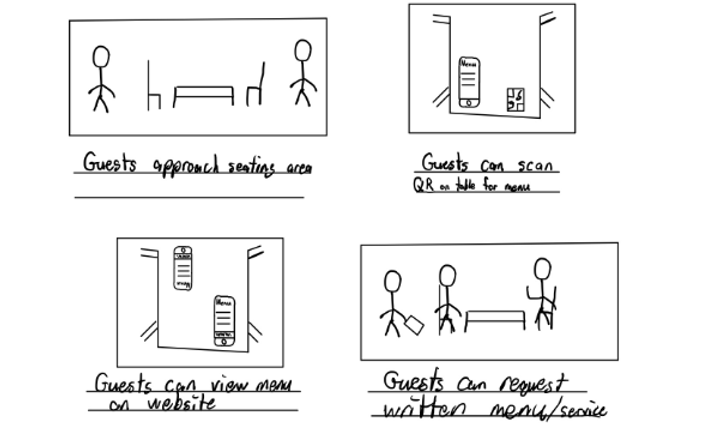 Guests approach seating area
Menu
Guests can scan
QR on table for menu
Menu
Guests can view menu
on website
Guests can request
written menu/service